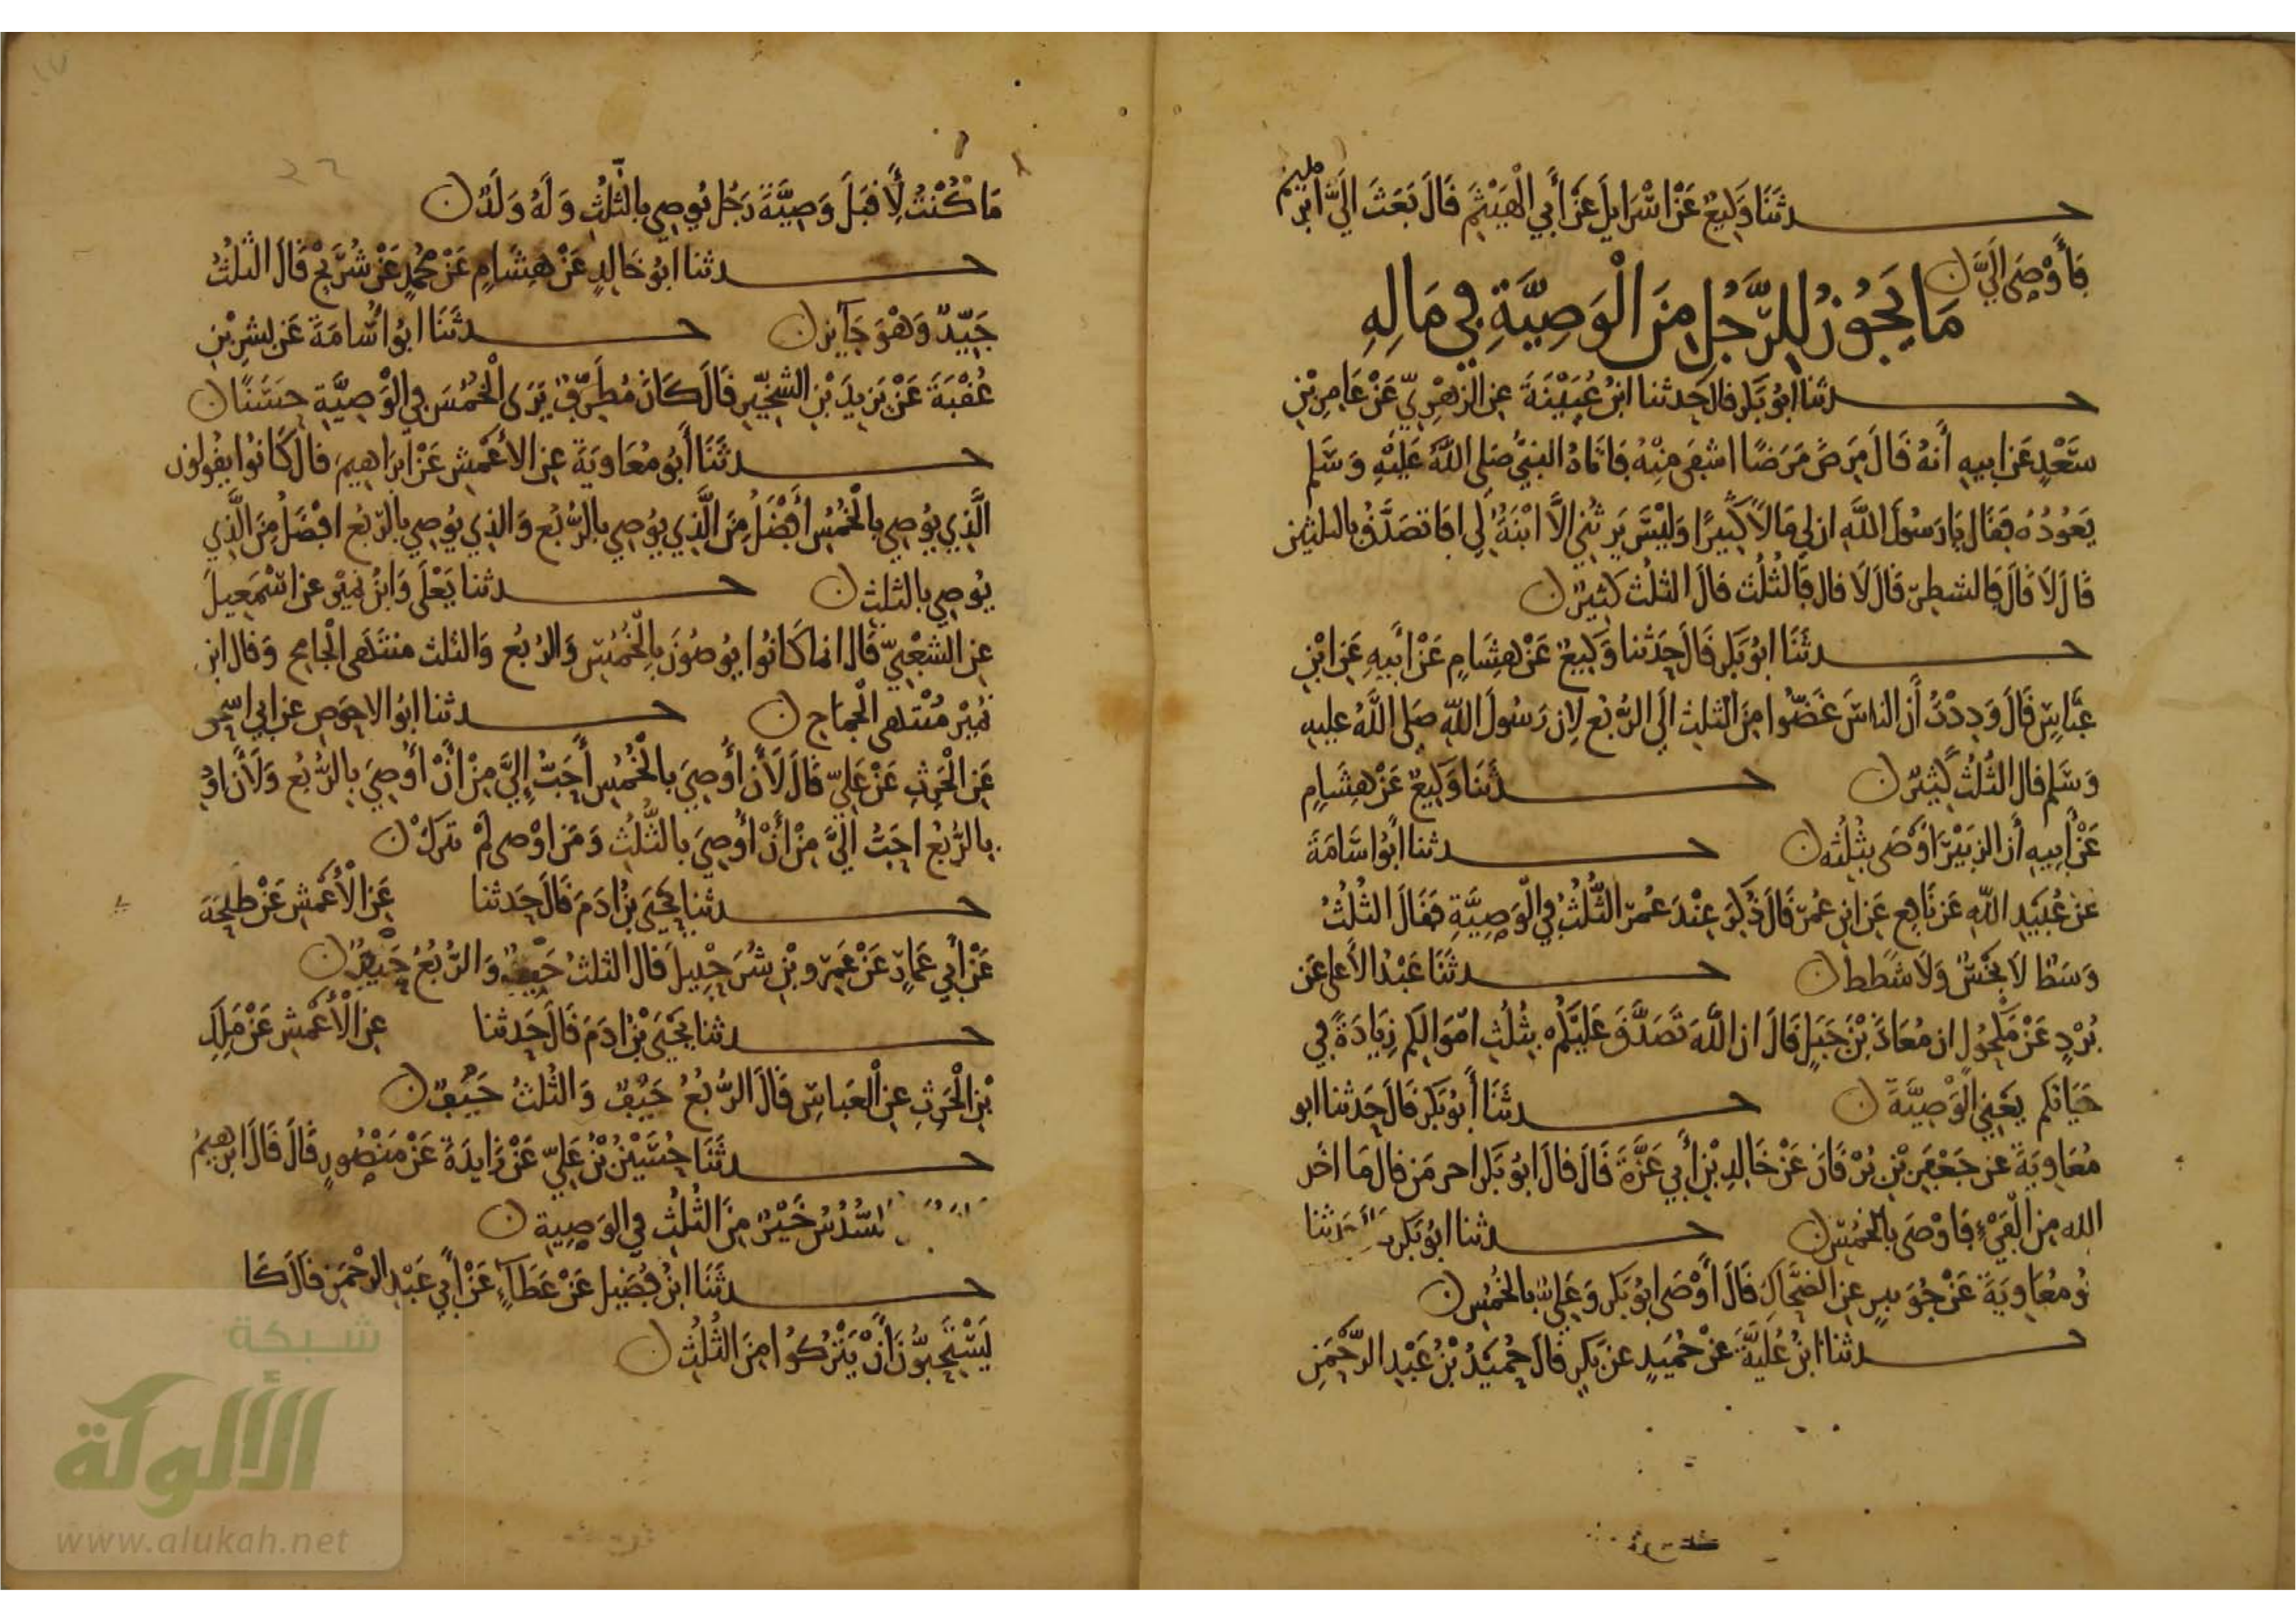 حـدثنا وكيع عن اسرايل عن أبي الهيثم قال بعث الي ابرهيم
فأوصى الي
ما يجوز للرجل من الوصية في ماله
حـدثنا ابو بكر قال حدثنا ابن عيينة عن الزهري عن عامر بن
سعد عن ابيه أنه قال مرض مرضا اشفى منه فاتاه النبي صلى الله عليه وسلم
يعوده فقال يا رسول الله ان لي مالا كثيرا وليس يرثني الا ابنة لي افاتصدق بالثلثين
قال لا قال فالشطر قال لا قال فالثلث قال الثلث كثير
حـدثنا ابو بكر قال حدثنا وكيع عن هشام عن أبيه عن ابن
عباس قال وددت أن الناس غضوا من الثلث الى الربع لان رسول الله صلى الله عليه
وسلم قال الثلث كثير حـدثنا وكيع عن هشام
عن أبيه أن الزبير أوصى بثلثه حـدثنا ابو اسامة
عن عبيد الله عن نافع عن ابن عمر قال ذكر عند عمر الثلث في الوصية فقال الثلث
وسط لا بخس ولا شطط حـدثنا عبد الأعلى عن
برد عن مكحول ان معاذ بن جبل قال ان الله تصدق عليكم بثلث اموالكم زيادة في
حياتكم يعني الوصية حـدثنا أبو بكر قال حدثنا ابو
معاوية عن جعفر بن برقان عن خالد بن أبي عزة قال قال ابو بكر قال ما اخذ
الله من الفيء فاوصى بالخمس حـدثنا ابو بكر حدثنا
بو معاوية عن جويبر عن الضحاك قال أوصى ابو بكر وعلي بالخمس
حـدثنا ابن علية عن حميد عن بكر قال حميد بن عبد الرحمن
ما كنت لأقبل وصية رجل يوصي بالثلث وله ولد
حـدثنا ابو خالد عن هشام عن محمد عن شريح قال الثلث
جيد وهو جايز حـدثنا ابو اسامة عن بشر بن
عقبة عن يزيد بن الشخير قال كان مطرف يرى الخمس في الوصية حسنا
حـدثنا أبو معاوية عن الأعمش عن ابراهيم قال كانوا يقولون
الذي يوصي بالخمس أفضل من الذي يوصي بالربع والذي يوصي بالربع افضل من الذي
يوصي بالثلث حـدثنا يعلى وابن نمير عن اسمعيل
عن الشعبي قال انما كانوا يوصون بالخمس والربع والثلث منتهى الجامح وقال ابن
نمير منتهى الجماح حـدثنا ابو الاحوص عن ابي اسحق
عن الحرث عن علي قال لأن أوصي بالخمس أحب إلي من أن أوصي بالربع ولأن او
بالربع احب الي من أن أوصي بالثلث ومن اوصى لم يترك
حـدثنا يحيى بن ادم قال حدثنا عن الأعمش عن طلحة
عن أبي عمار عن عمرو بن شرحبيل قال الثلث حيف والربع حيف
حـدثنا يحيى بن ادم قال حدثنا عن الأعمش عن ملك
بن الحرث عن العباس قال الربع حيف والثلث حيف
حـدثنا حسين بن علي عن زايدة عن منصور قال قال ابرهيم
السدس خير من الثلث في الوصية
حـدثنا ابن فضيل عن عطاء عن أبي عبد الرحمن قال كا
يستحبون أن يتركوا من الثلث
شبكة
الألوكة
www.alukah.net